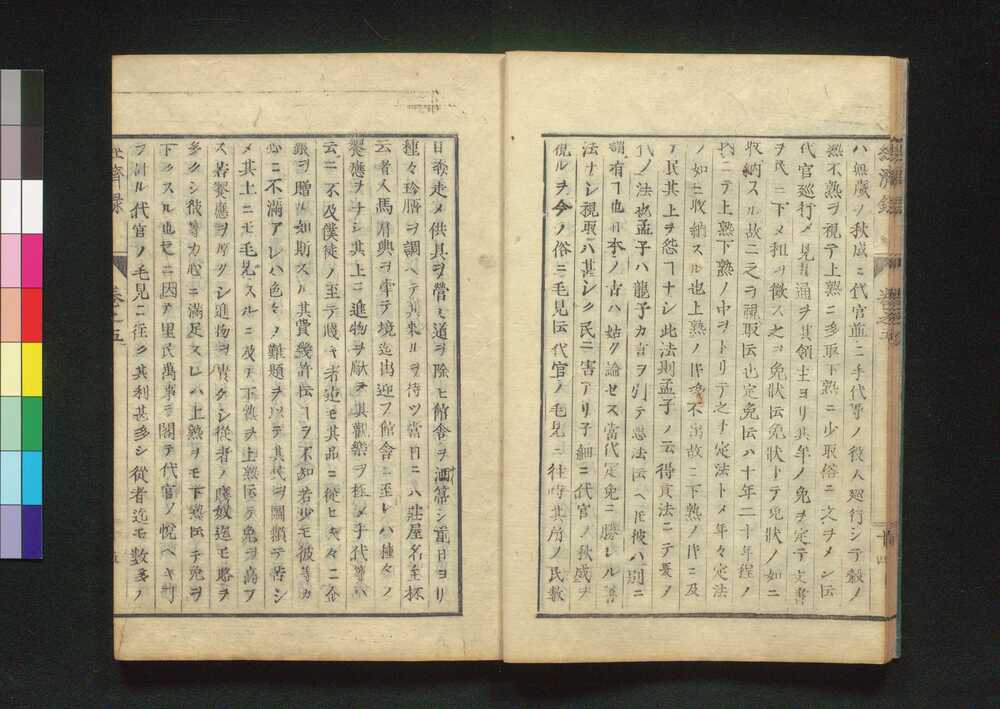 ハ無歳ノ秋成ニ代官並ニ手代等ノ役人廻行シテ穀ノ
熟不熟ヲ視テ上熟ニ多取下熟ニ少取俗ニ之ヲメシ伝
代官巡行メ見通ヲ其領主ヨリ其年ノ免ヲ定テ文書
ヲ民ニ下メ租ヲ徴ス之ヲ免状伝免状トテ免状ノ如ニ
収納スル故ニ之ヲ視取伝也定免伝ハ十年二十年程ノ
ニテ上熟下熟ノ中ヲトリテ之ヲ定法トメ年々定法
ノ如ニ収納スル也上熟ノ年多不出故ニ下熟ノ年ニ及
テ民其上ヲ怨ヿナシ此法則孟子ノ云得貢法ニテ夏ノ
代ノ法也孟子ハ龍子カ言ヲ引テ悪法伝ヘ圧彼ハ別ニ
有ヿ也日本ノ古ハ姑ク論セス當代定免ニ勝レル善
法ナシ視取ハ甚シク民ニ害アリ子細ニ代官ノ秋成ヲ
視ルヲ今ノ俗ニ毛見伝代官ノ毛見ニ往時其所ノ民数
日奔走メ供具ヲ營ミ道ヲ除ヒ館舎ヲ洒箒シ前日ヨリ
種々珍膳ヲ調ヘテ其来ルヲ待ツ當日ニハ莊屋名主抔
云者人馬肩輿ヲ牽テ境迄出迎フ館舎ニ至レハ種々ノ
饗應ヲナシ其上ニ進物ヲ献ヲ其歡樂ヲ極メ手代等ハ
云ニ不及僕徒ノ至テ賤キ者迄モ其品ニ從ヒ夫々ニ金
銀ヲ贈ル如斯スル其費幾許伝ヿヲ不知若少モ彼等カ
心ニ不満アレハ色々ノ難題ヲ以テ其民ヲ困窮テ苦シ
メ其上ニモ毛見スルニ及テ下熟ヲ上熟伝テ免ヲ高フ
ス若饗應ヲ厚クシ進物ヲ貴クシ從者ノ賤奴迄モ賂ヲ
多クシ彼等カ心ニ満足スレハ上熟ヲモ下熟伝テ免ヲ
下クスル也是ニ因テ里民萬事ヲ閣テ代官ノ悦ヘキ
ヲ計ル代官ノ毛見ニ往ク其利甚多シ從者迄モ數多ノ
經濟録 巻之五